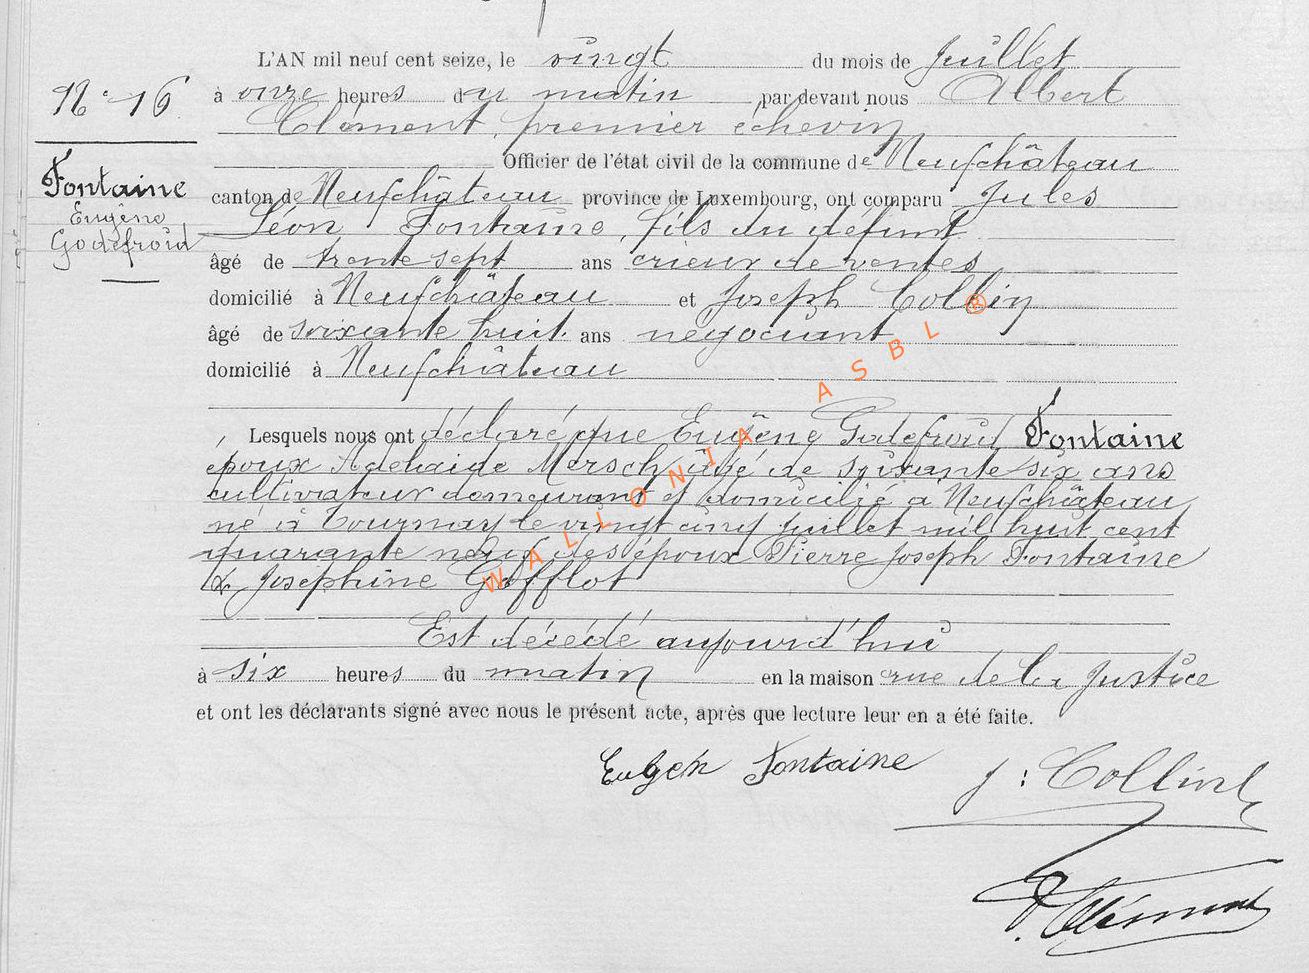 L'AN mil neuf cent seize, le vingt du mois de Juillet
N° 16
à onze heures du matin par devant nous Albert
Clément, premier échevin
Officier de l'état civil de la commune de Neufchâteau
Fontaine
Eugène
Godefroid
canton de Neufchâteau province de Luxembourg, ont comparu Jules
Léon Fontaine, fils du défunt
âgé de trente sept ans crieur de ventes
domicilié à Neufchâteau et Joseph Collin
âgé de soixante huit ans négociant
domicilié à Neufchâteau
Lesquels nous ont déclaré que Eugène Godefroid Fontaine
époux Adelaide Mersch âgé de soixante six ans
cultivateur demeurant et domicilié à Neufchâteau
né à Tournay le vingt cinq juillet mil huit cent
quarante neuf des époux Pierre Joseph Fontaine
& Joséphine Gofflot
Est décédé aujourd'hui
à six heures du matin en la maison rue de la Justice
et ont les déclarants signé avec nous le présent acte, après que lecture leur en a été faite.
Eugen Fontaine J: Collin
Clément
WALLONIA ASBL ®